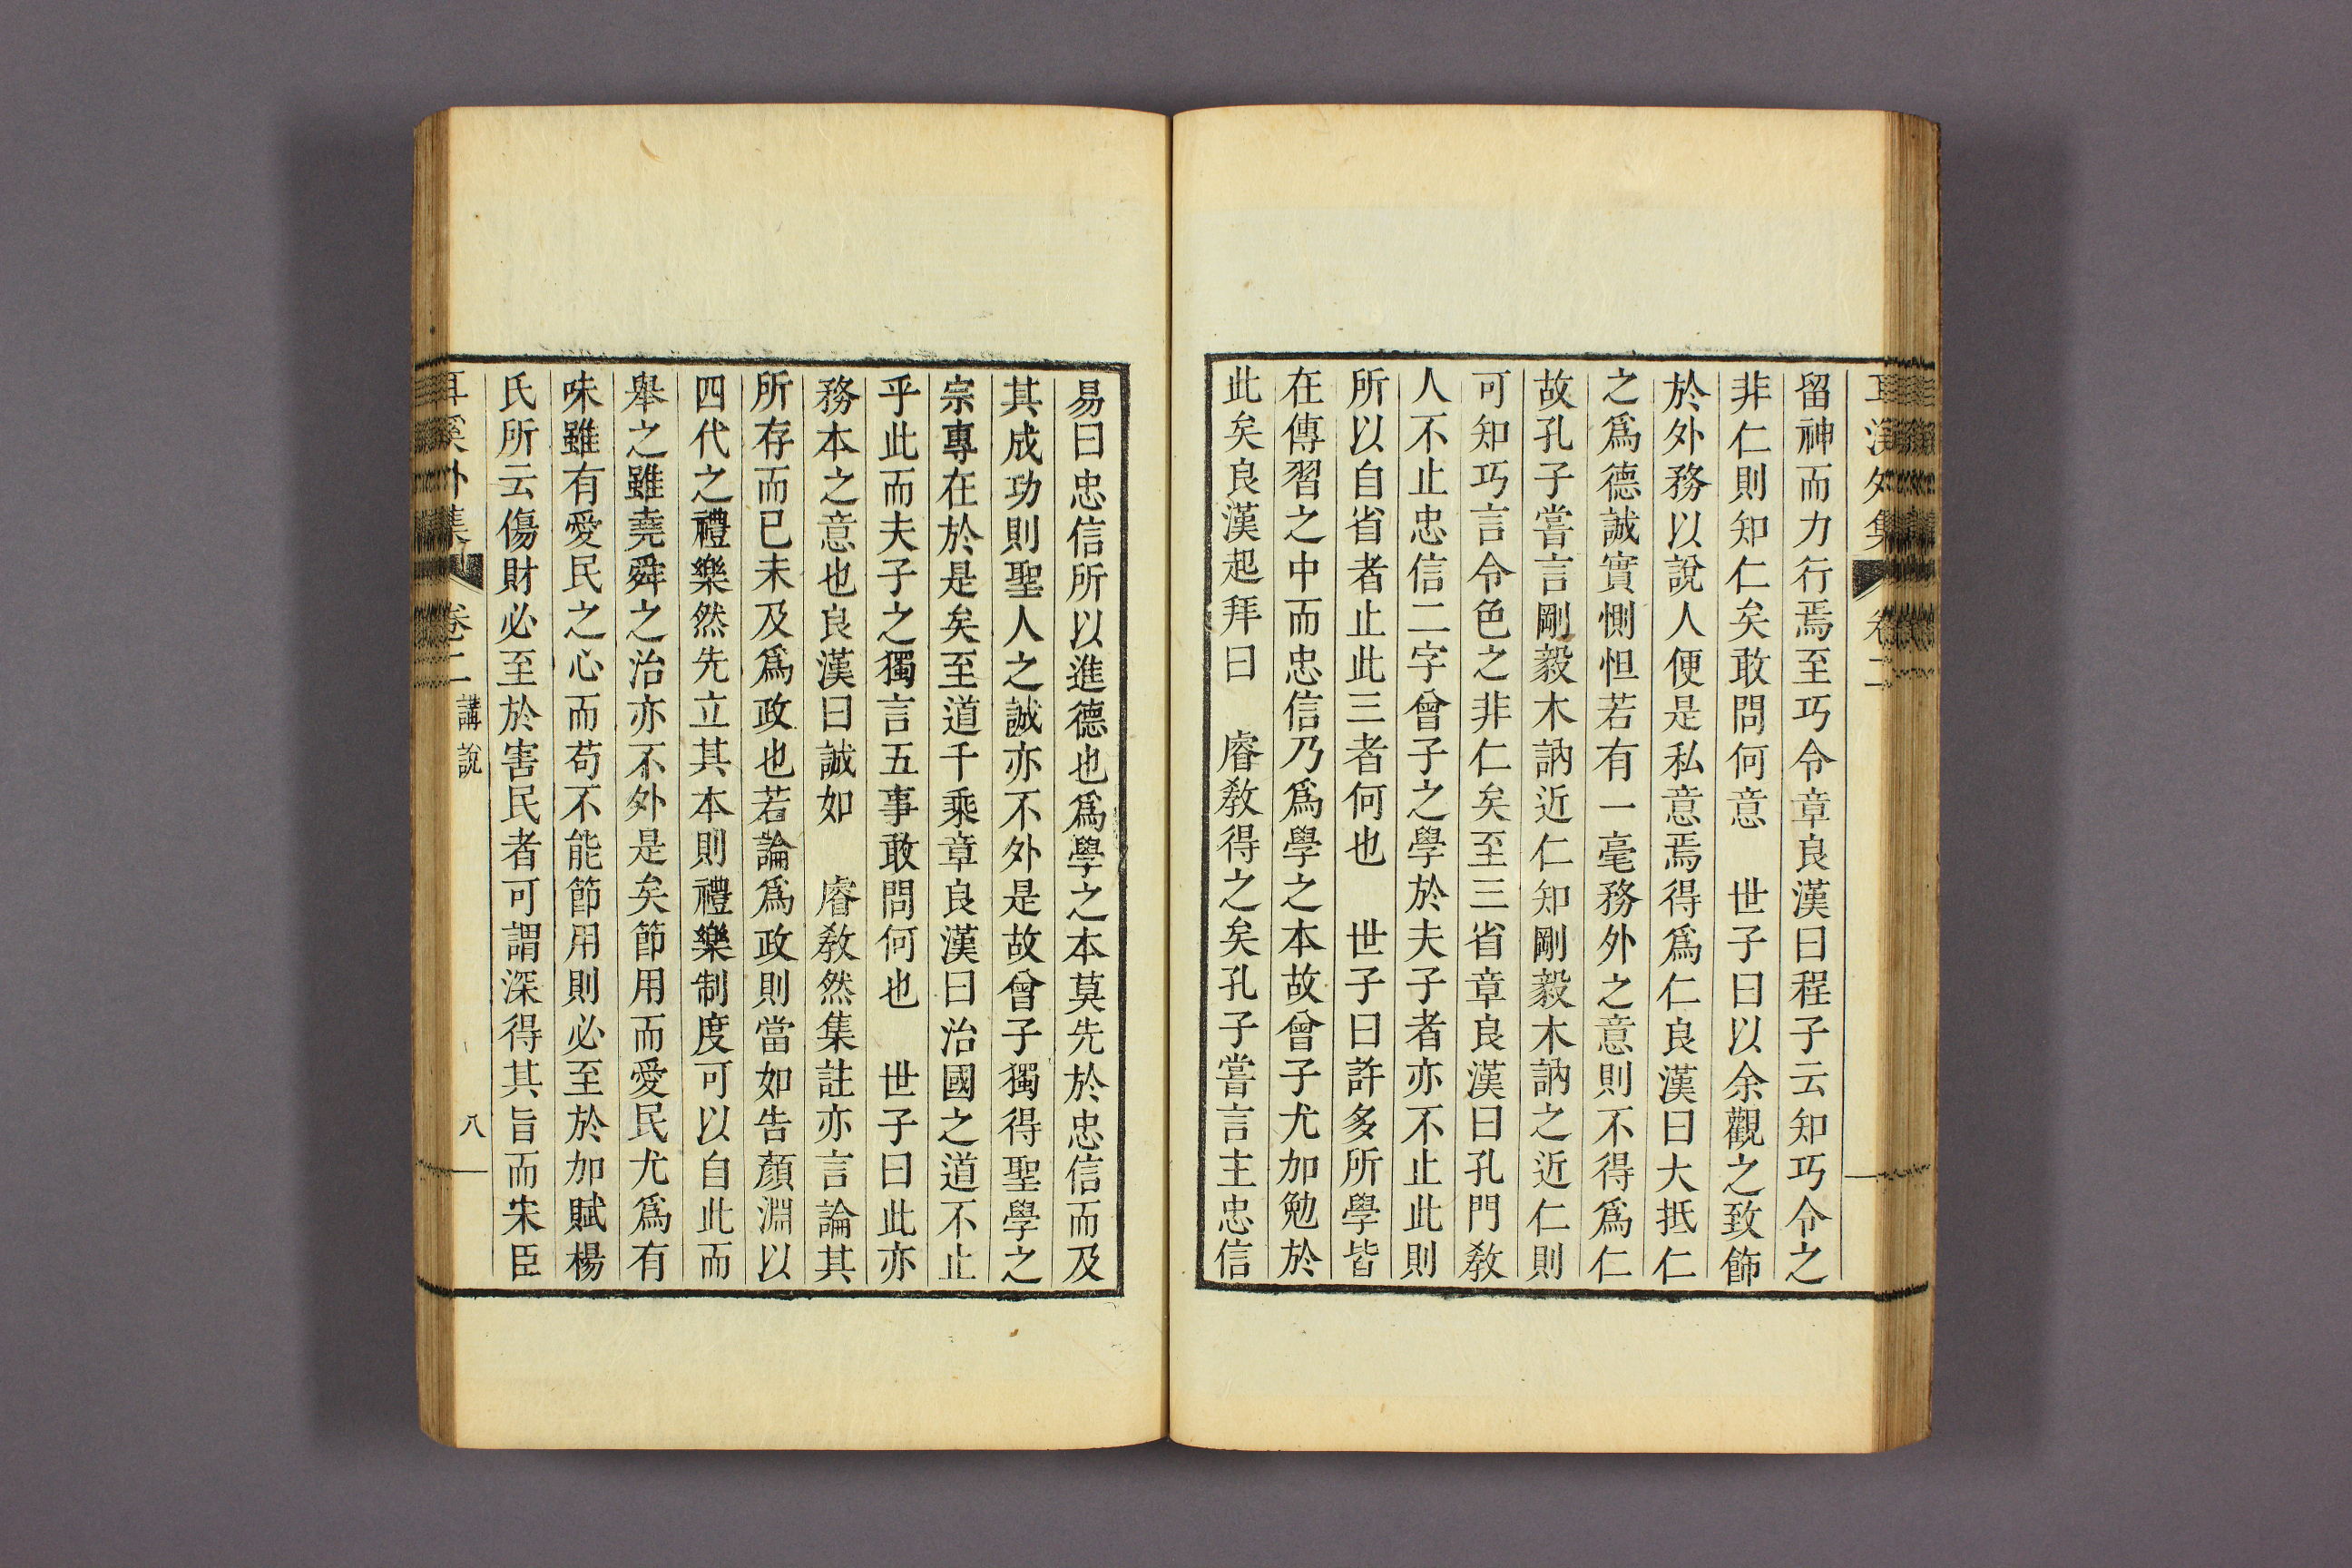 耳溪外集 卷二
留神而力行焉至巧令章良漢曰程子云知巧令之
非仁則知仁矣敢問何意 世子曰以余觀之致飾
於外務以說人便是私意焉得爲仁良漢曰大抵仁
之爲德誠實惻怛若有一毫務外之意則不得爲仁
故孔子嘗言剛毅木訥近仁知剛毅木訥之近仁則
可知巧言令色之非仁矣至三省章良漢曰孔門敎
人不止忠信二字曾子之學於夫子者亦不止此則
所以自省者止此三者何也 世子曰許多所學皆
在傳習之中而忠信乃爲學之本故曾子尤加勉於
此矣良漢起拜曰 睿敎得之矣孔子嘗言主忠信
易曰忠信所以進德也爲學之本莫先於忠信而及
其成功則聖人之誠亦不外是故曾子獨得聖學之
宗專在於是矣至道千乘章良漢曰治國之道不止
乎此而夫子之獨言五事敢問何也 世子曰此亦
務本之意也良漢曰誠如 睿敎然集註亦言論其
所存而已未及爲政也若論爲政則當如告顏淵以
四代之禮樂然先立其本則禮樂制度可以自此而
舉之雖堯舜之治亦不外是矣節用而愛民尤爲有
味雖有愛民之心而苟不能節用則必至於加賦楊
氏所云傷財必至於害民者可謂深得其旨而宋臣
耳溪外集 卷二 講說 八